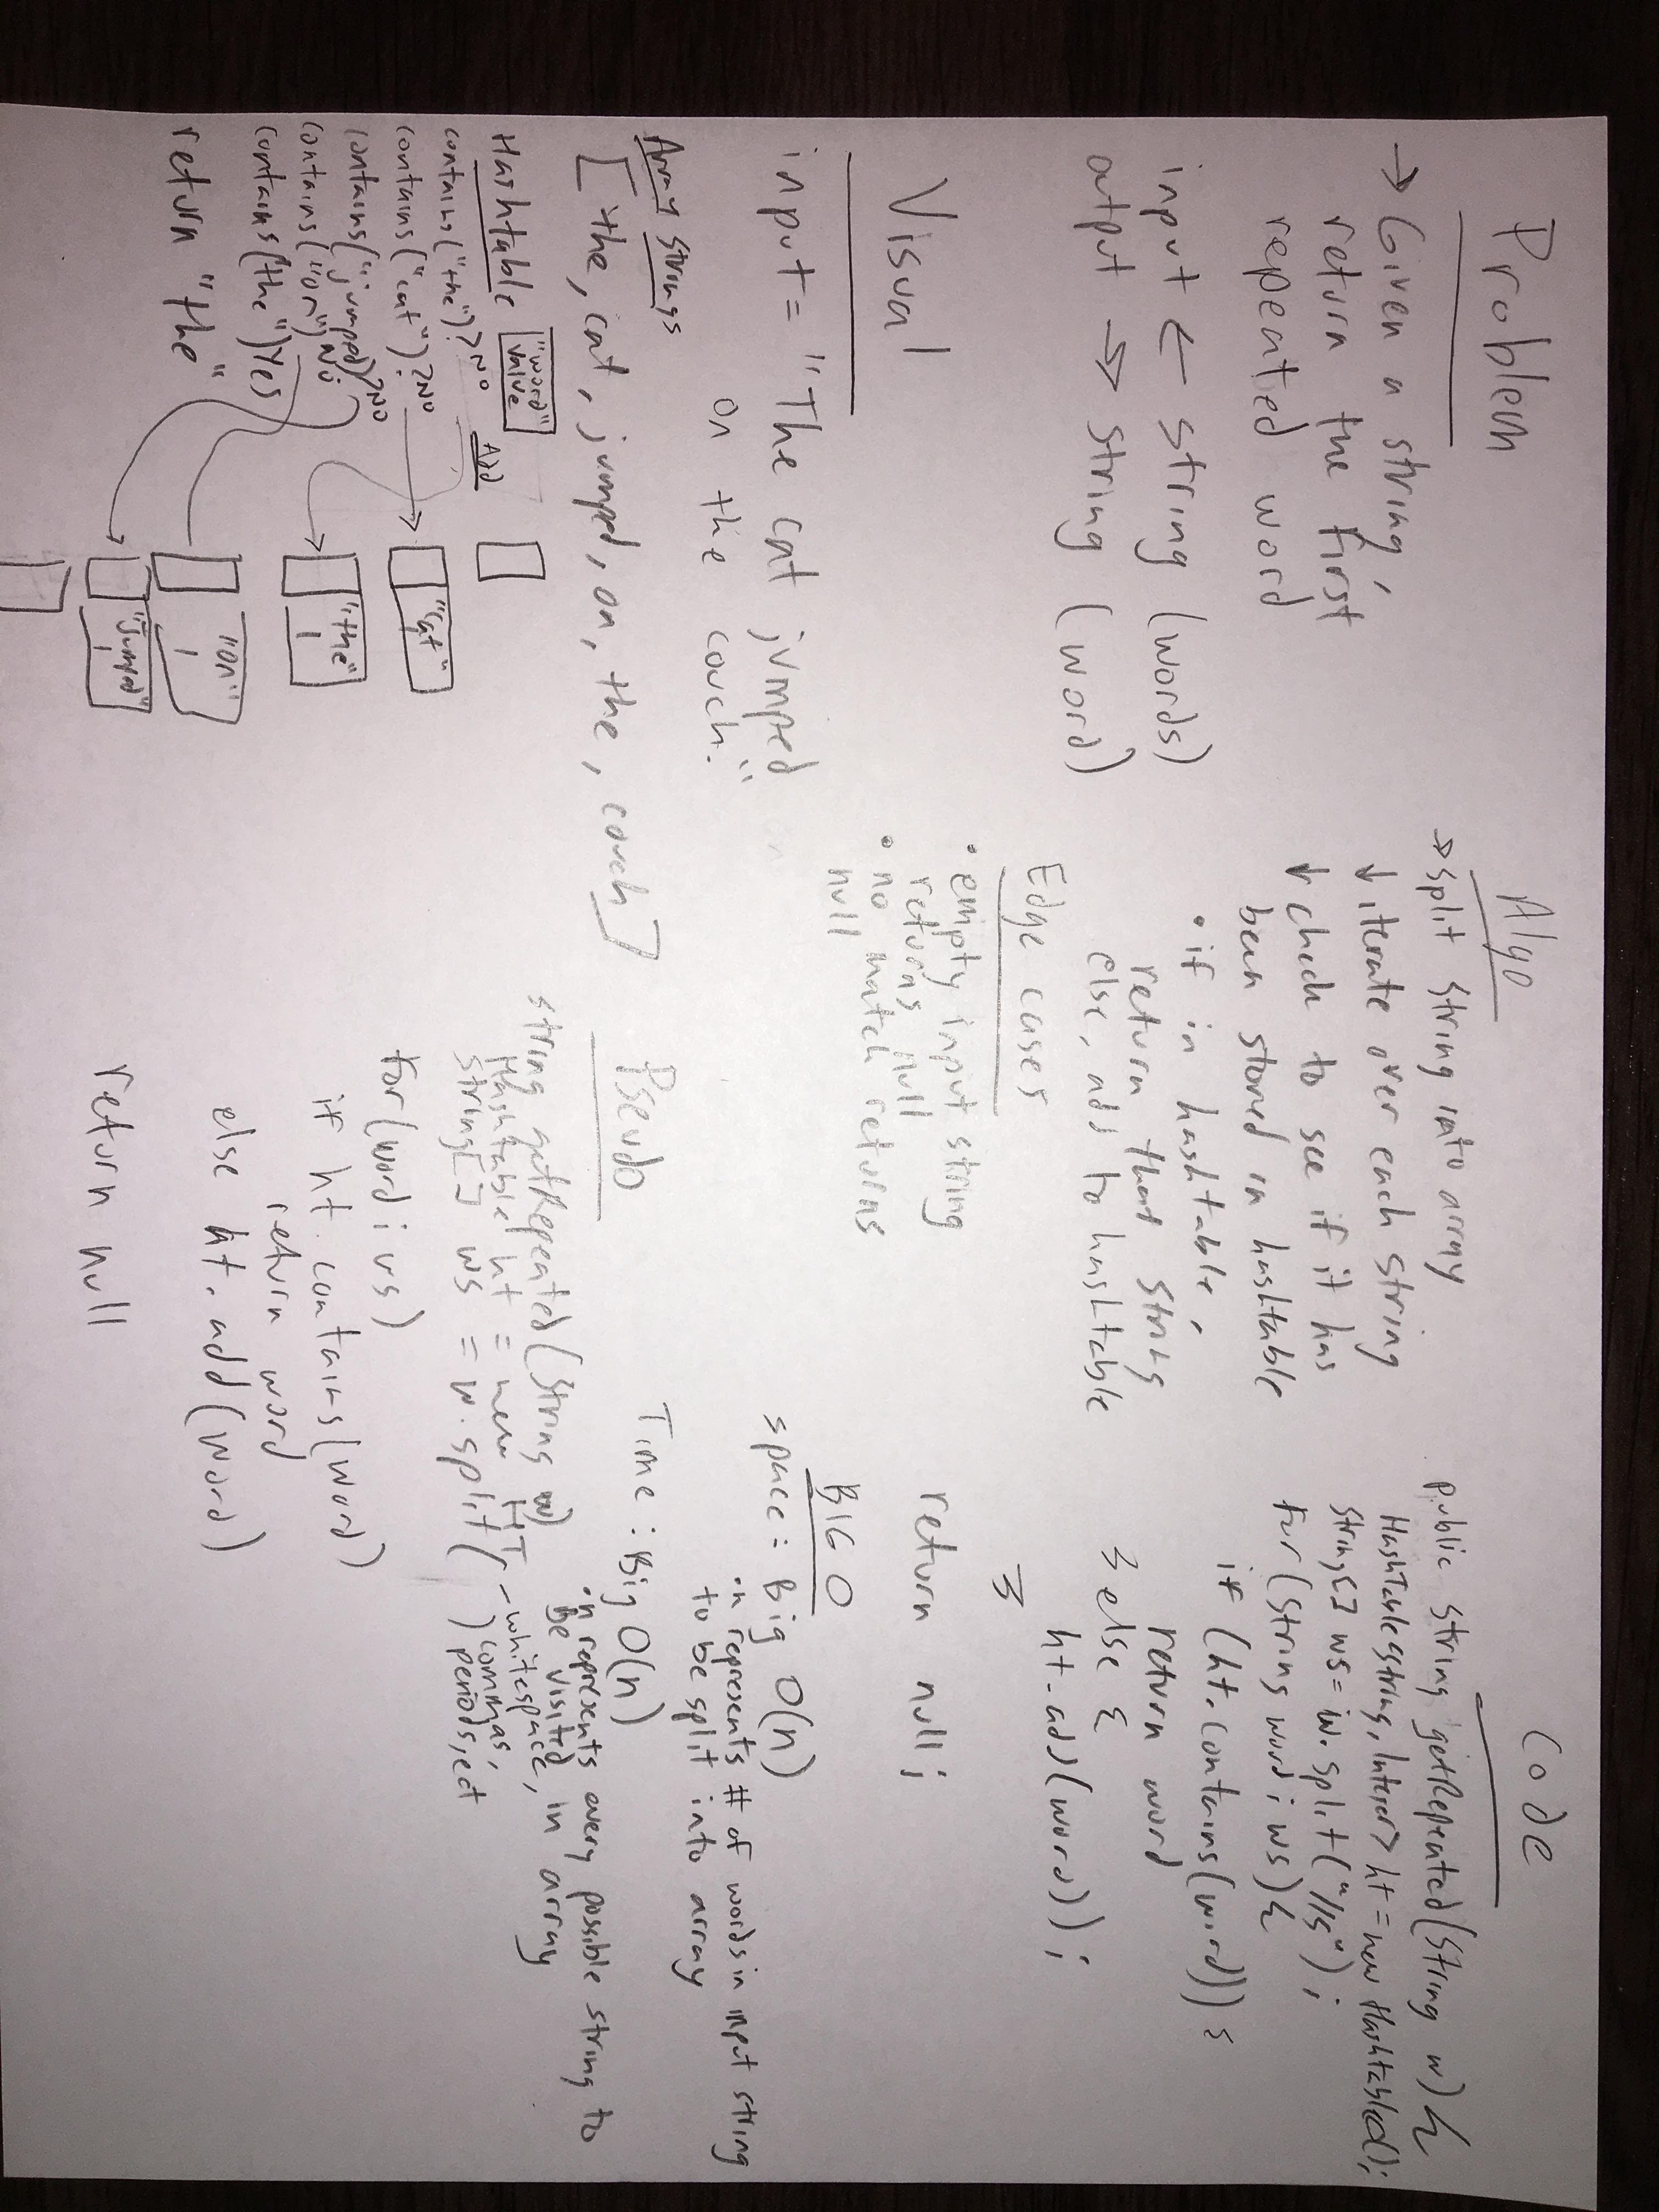 Problem
→ Given a string,
return the first
repeated word
input ← string (words)
output → string (word)
Visual
input = "The cat jumped
on the couch."
Array Strings
[the, cat, jumped, on, the, couch]
Hashtable
"word"
value
contains("the")?NO
ADD
contains("cat")?NO
contains("jumped)?NO
contains("on")NO
contains(the")Yes
return "the"
"cat"
"the"
1
"on"
1
"Jumped"
1
Algo
→ split string into array
↓ iterate over each string
↓ check to see if it has
been stored in hashtable
• if in hashtable,
return that string
else, add to hashtable
Edge cases
• empty input string
returns null
• no match returns
null
Pseudo
string getRepeated(String w)
Hashtable ht = new HT
String[] ws = w.split( )
- whitespace,
commas,
periods, ect
for(word : ws)
if ht.contains(word)
return word
else ht.add(word)
return null
Code
public string getRepeated(String w){
HashTable<string, Integer> ht = new Hashtable();
String[] ws = w.split("//s");
for(String word : ws){
if (ht.contains(word)){
return word
} else {
ht.add(word));
}
return null;
BIG O
space: Big O(n)
• n represents # of words in input string
to be split into array
Time: Big O(n)
• n represents every possible string to
be visited in array